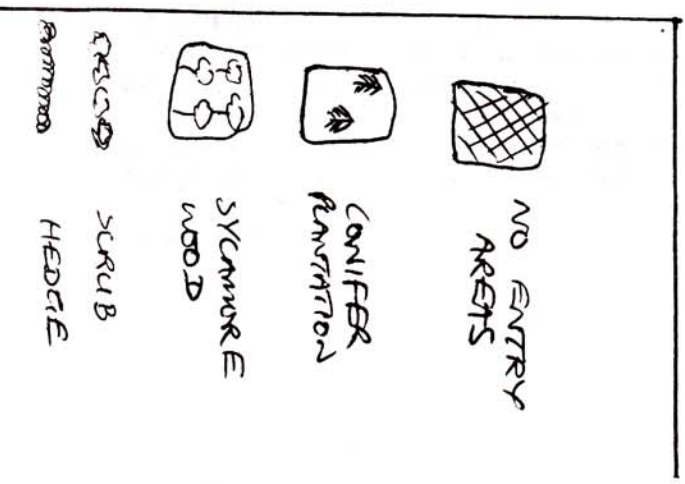 NO ENTRY
AREAS
CONIFER
PLANTATION
SYCAMORE
WOOD
SCRUB
HEDGE